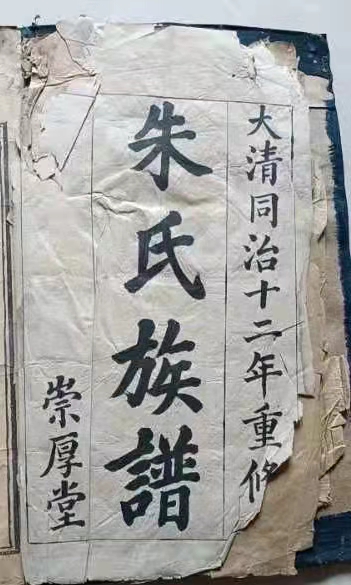 大清同治十二年重修
朱氏族譜
崇厚堂